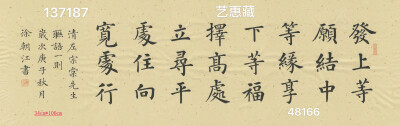 137187
艺惠藏
發上等
願結中
等緣享
下等福
擇高處
立尋平
處住向
寬處行
清左宗棠先生
聯語一則
歲次庚子秋月
徐朝江書
48166